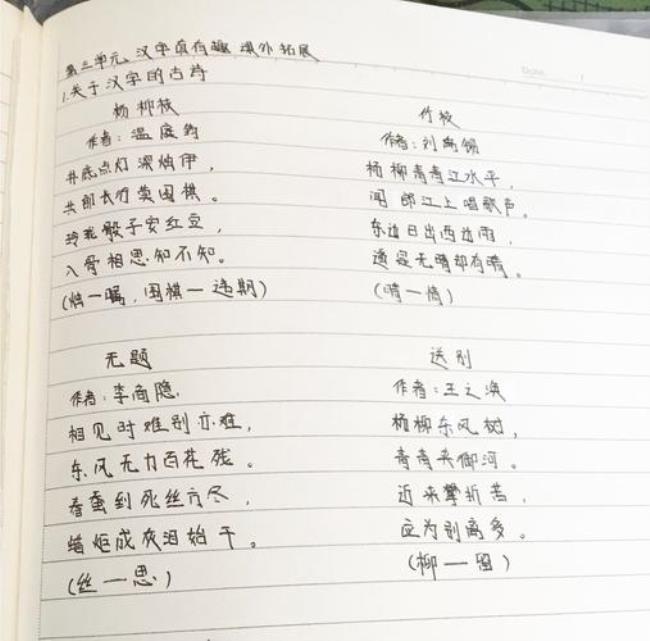 Date
第三单元、汉字真有趣 课外拓展
1.关于汉字的古诗
杨柳枝
作者:温庭筠
井底点灯深烛伊,
共郎长行莫围棋。
玲珑骰子安红豆,
入骨相思知不知。
(烛一嘱,围棋一违期)
竹枝
作者:刘禹锡
杨柳青青江水平,
闻郎江上唱歌声。
东边日出西边雨,
道是无晴却有晴。
(晴一情)
无题
作者:李商隐
相见时难别亦难,
东风无力百花残。
春蚕到死丝方尽,
蜡炬成灰泪始干。
(丝一思)
送别
作者:王之涣
杨柳东风树,
青青夹御河。
近来攀折苦,
应为别离多。
(柳一留)